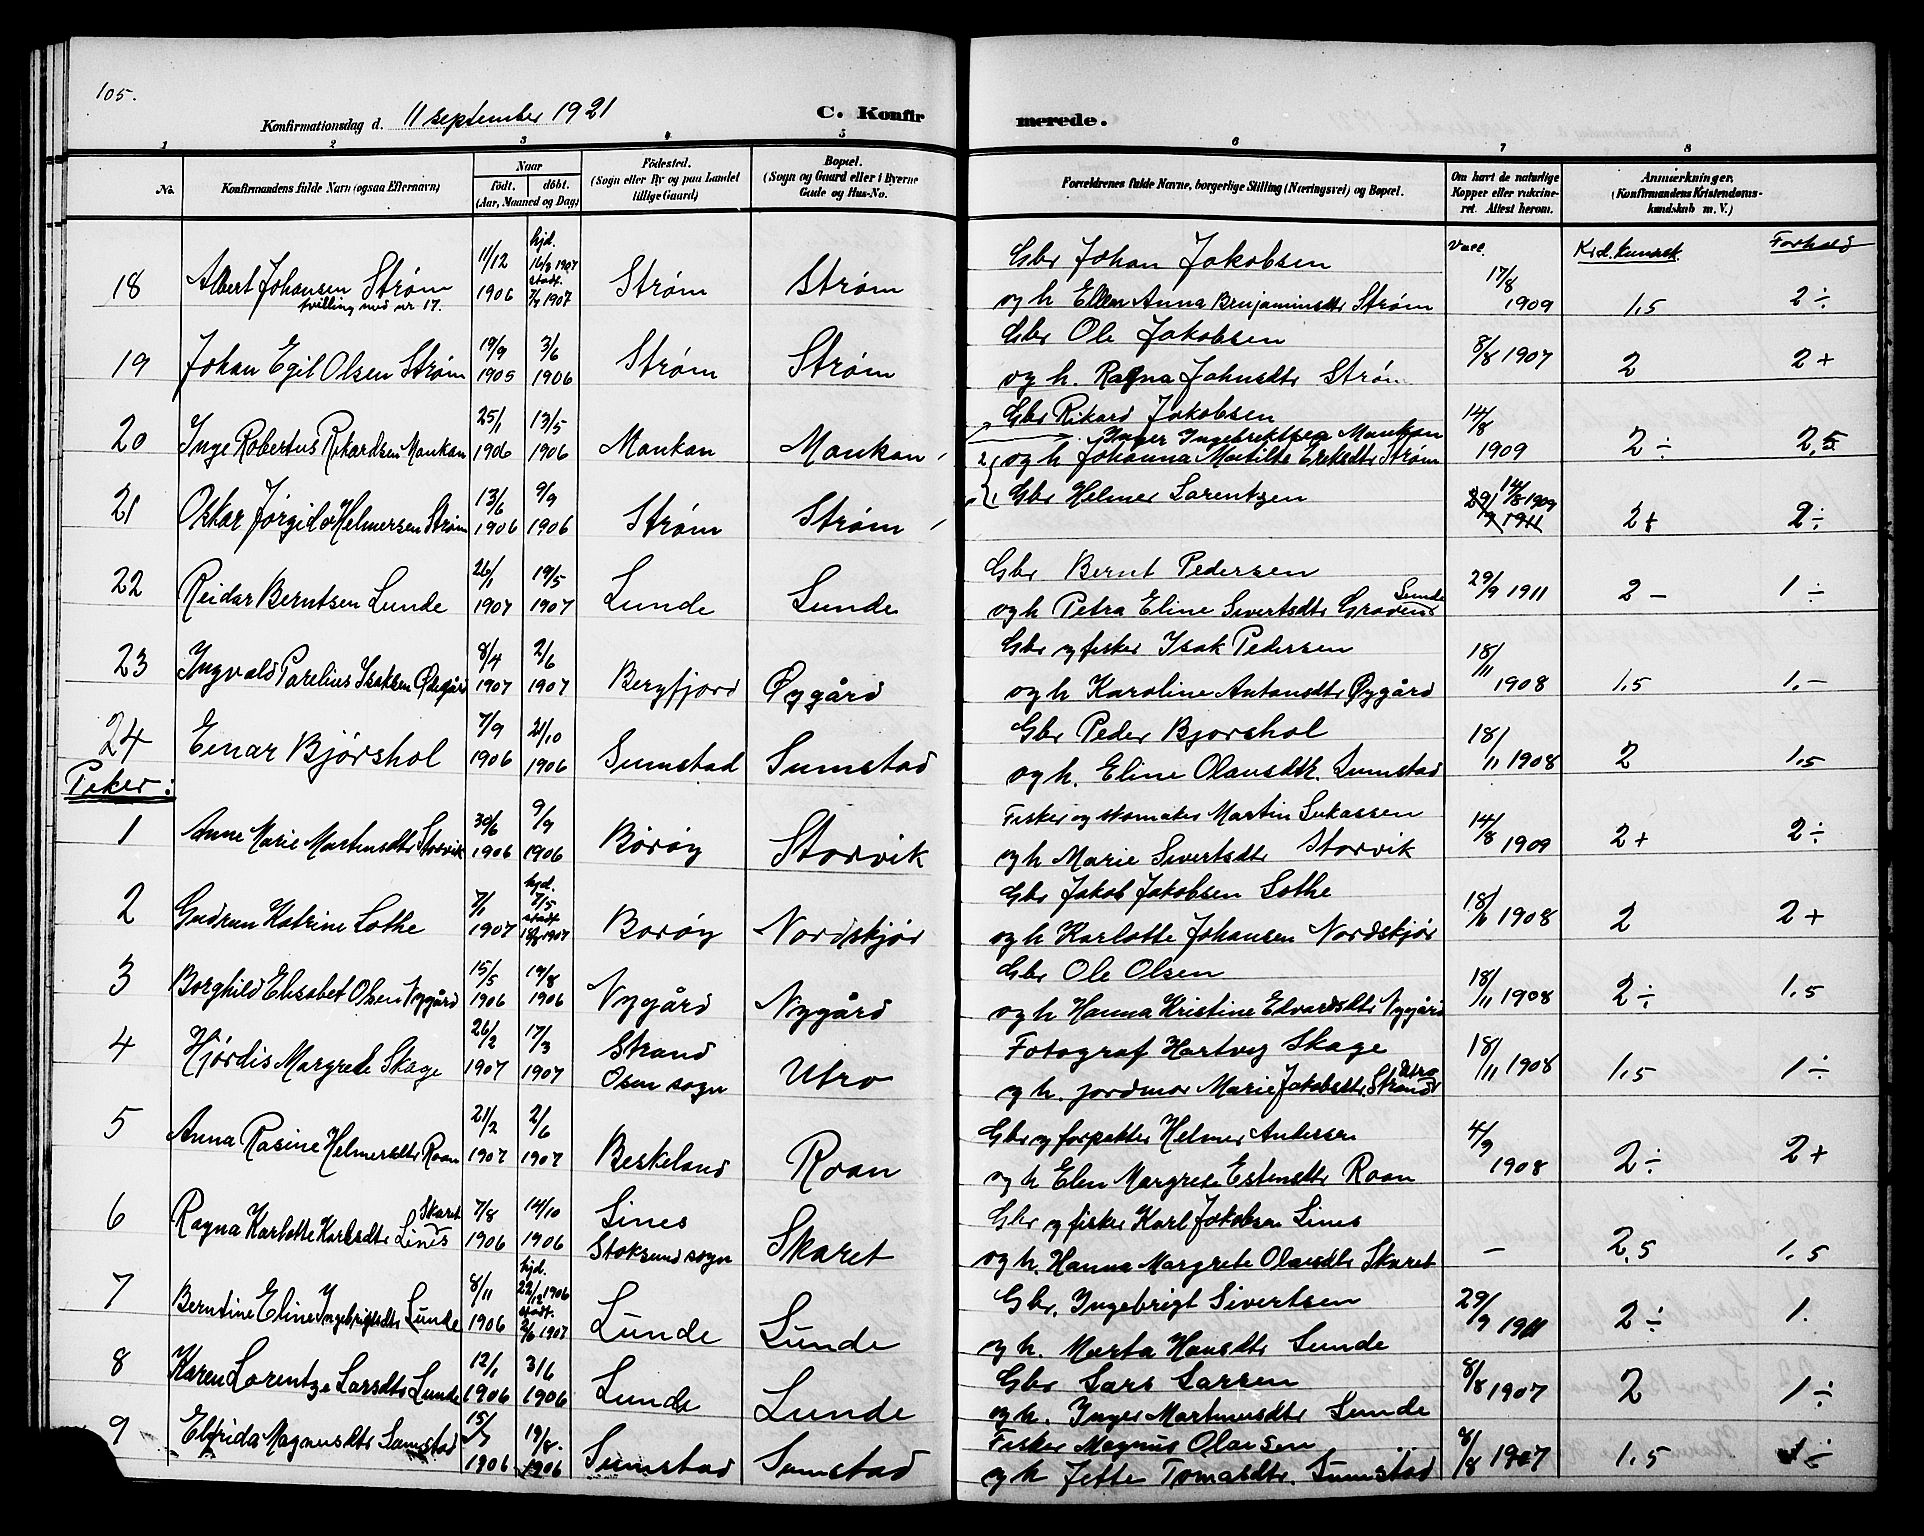 105.
Konfirmationsdag d. 11 september 1921 C. Konfirmerede.
1 2 3 4 5 6 7 8
No. Konfirmandens fulde Navn (ogsaa Efternavn) Naar födt. döbt. (Aar, Maaned og Dag) Födested. (Sogn eller By og paa Landet tillige Gaard) Bopæl. (Sogn og Gaard eller i Byerne Gade og Hus-No. Forældrenes fulde Navne, borgerlige Stilling (Næringsvei) og Bopæl. Om havt de naturlige Kopper eller vakcineret. Attest herom. Anmærkninger. (Konfirmandens Kristendomskundskab m. V.)
Vacc. Krd. kundsk. Forhold
18 Albert Johansen Strøm tvilling med nr 17. 11/12 1906 hjd. 16/3 1907 stadf. 7/7 1907 Strøm Strøm Gbr Johan Jakobsen
og h Ellen Anna Benjaminsdtr Strøm 17/8 1909 1,5 2÷
19 Johan Egil Olsen Strøm 19/9 1905 3/6 1906 Strøm Strøm Gbr Ole Jakobsen
og h. Ragna Johnsdtr Strøm 8/8 1907 2 2+
20 Inge Robertus Rikardsen Monkan 25/1 1906 13/5 1906 Monkan Monkan Gbr Rikard Jakobsen
Inger Ingebrektsen Monkan
14/8 1909 2÷ 2,5
2 og h Johanna Matilde Eriksdtr Strøm
21 Oskar Jørgild Helmersen Strøm 13/6 1906 9/9 1906 Strøm Strøm 1 Gbr Helmer Lorentzen 14/8 1909 29/9 1911 2+ 2÷
22 Reidar Berntsen Lunde 26/1 1907 19/5 1907 Lunde Lunde Gbr Bernt Pedersen
og h Petra Eline Sivertsdtr Graven Lunde 29/9 1911 2 - 1÷
23 Ingvald Parelius Isaksen Ødegård 8/4 1907 2/6 1907 Bergfjord Øygård Gbr og fisker Isak Pedersen
og h Karoline Antonsdtr Øygård 18/11 1908 1,5 1.-
24 Einar Bjørshol 7/9 1906 21/10 1906 Sumstad Sumstad Gbr Peder Bjørshol
og h. Eline Olausdtr. Sumstad 18/11 1908 2 1,5
Piker:
1 Anne Marie Martinsdtr Storvik 30/6 1906 9/9 1906 Børøy Storvik Fisker og skomaker Martin Lukassen
og h Marie Sivertsdtr Storvik 14/8 1909 2+ 2÷
2 Gudrun Katrine Lothe 7/1 1907 hjd. 7/5 stadf. 1907 Borøy Nordskjør Gbr Jakob Jakobsen Lothe
og h Karlotte Johansen Nordskjør 18/11 1908 2 2+
3 Borghild Elisabet Olsen Nygård 15/5 1906 19/8 1906 Nygård Nygård Gbr Ole Olsen
og h Hanna Kristine Edvardsdtr Nygård 18/11 1908 2÷ 1,5
4 Hjørdis Margrete Skage 26/2 1907 17/3 1907 Strand Osen sogn Utro Fotograf Hartvig Skage
og h. jordmor Marie Jakobsdtr. Strand Utro 18/11 1908 1,5 1÷
5 Anna Rasine Helmersdtr Roan 21/2 1907 2/6 1907 Beskeland Roan Gbr og forpakter Helmer Andersen
og h Elen Margrete Estensdtr Roan 4/9 1908 2÷ 2+
6 Ragna Karlotte Karlsdtr Lines Skaret 7/8 1906 14/10 1906 Lines Stoksund sogn Skaret Gbr og fisker Karl Jakobsen Lines
og h. Hanna Margrete Olausdtr Skaret - 2,5 1,5
7 Berntine Eline Ingebrigtsdtr Lunde 8/11 1906 hjd. 22/12 1906 stadf. 2/6 1907 Lunde Lunde Gbr. Ingebrigt Sivertsen
og h. Marta Hansdtr Lunde 29/9 1911 2÷ 1.
8 Karen Lorentze Larsdtr Lunde 12/1 1906 3/6 1906 Lunde Lunde Gbr Lars Larsen
og h. Inger Martinusdtr Lunde 8/8 1907 2 1÷
9 Elfrida Magnusdtr Sumstad 15/7 1906 19/8. 1906 Sumstad Sumstad Fisker Magnus Olausen
og h Jette Tomasdtr. Sumstad 8/8 1907 1,5 1÷